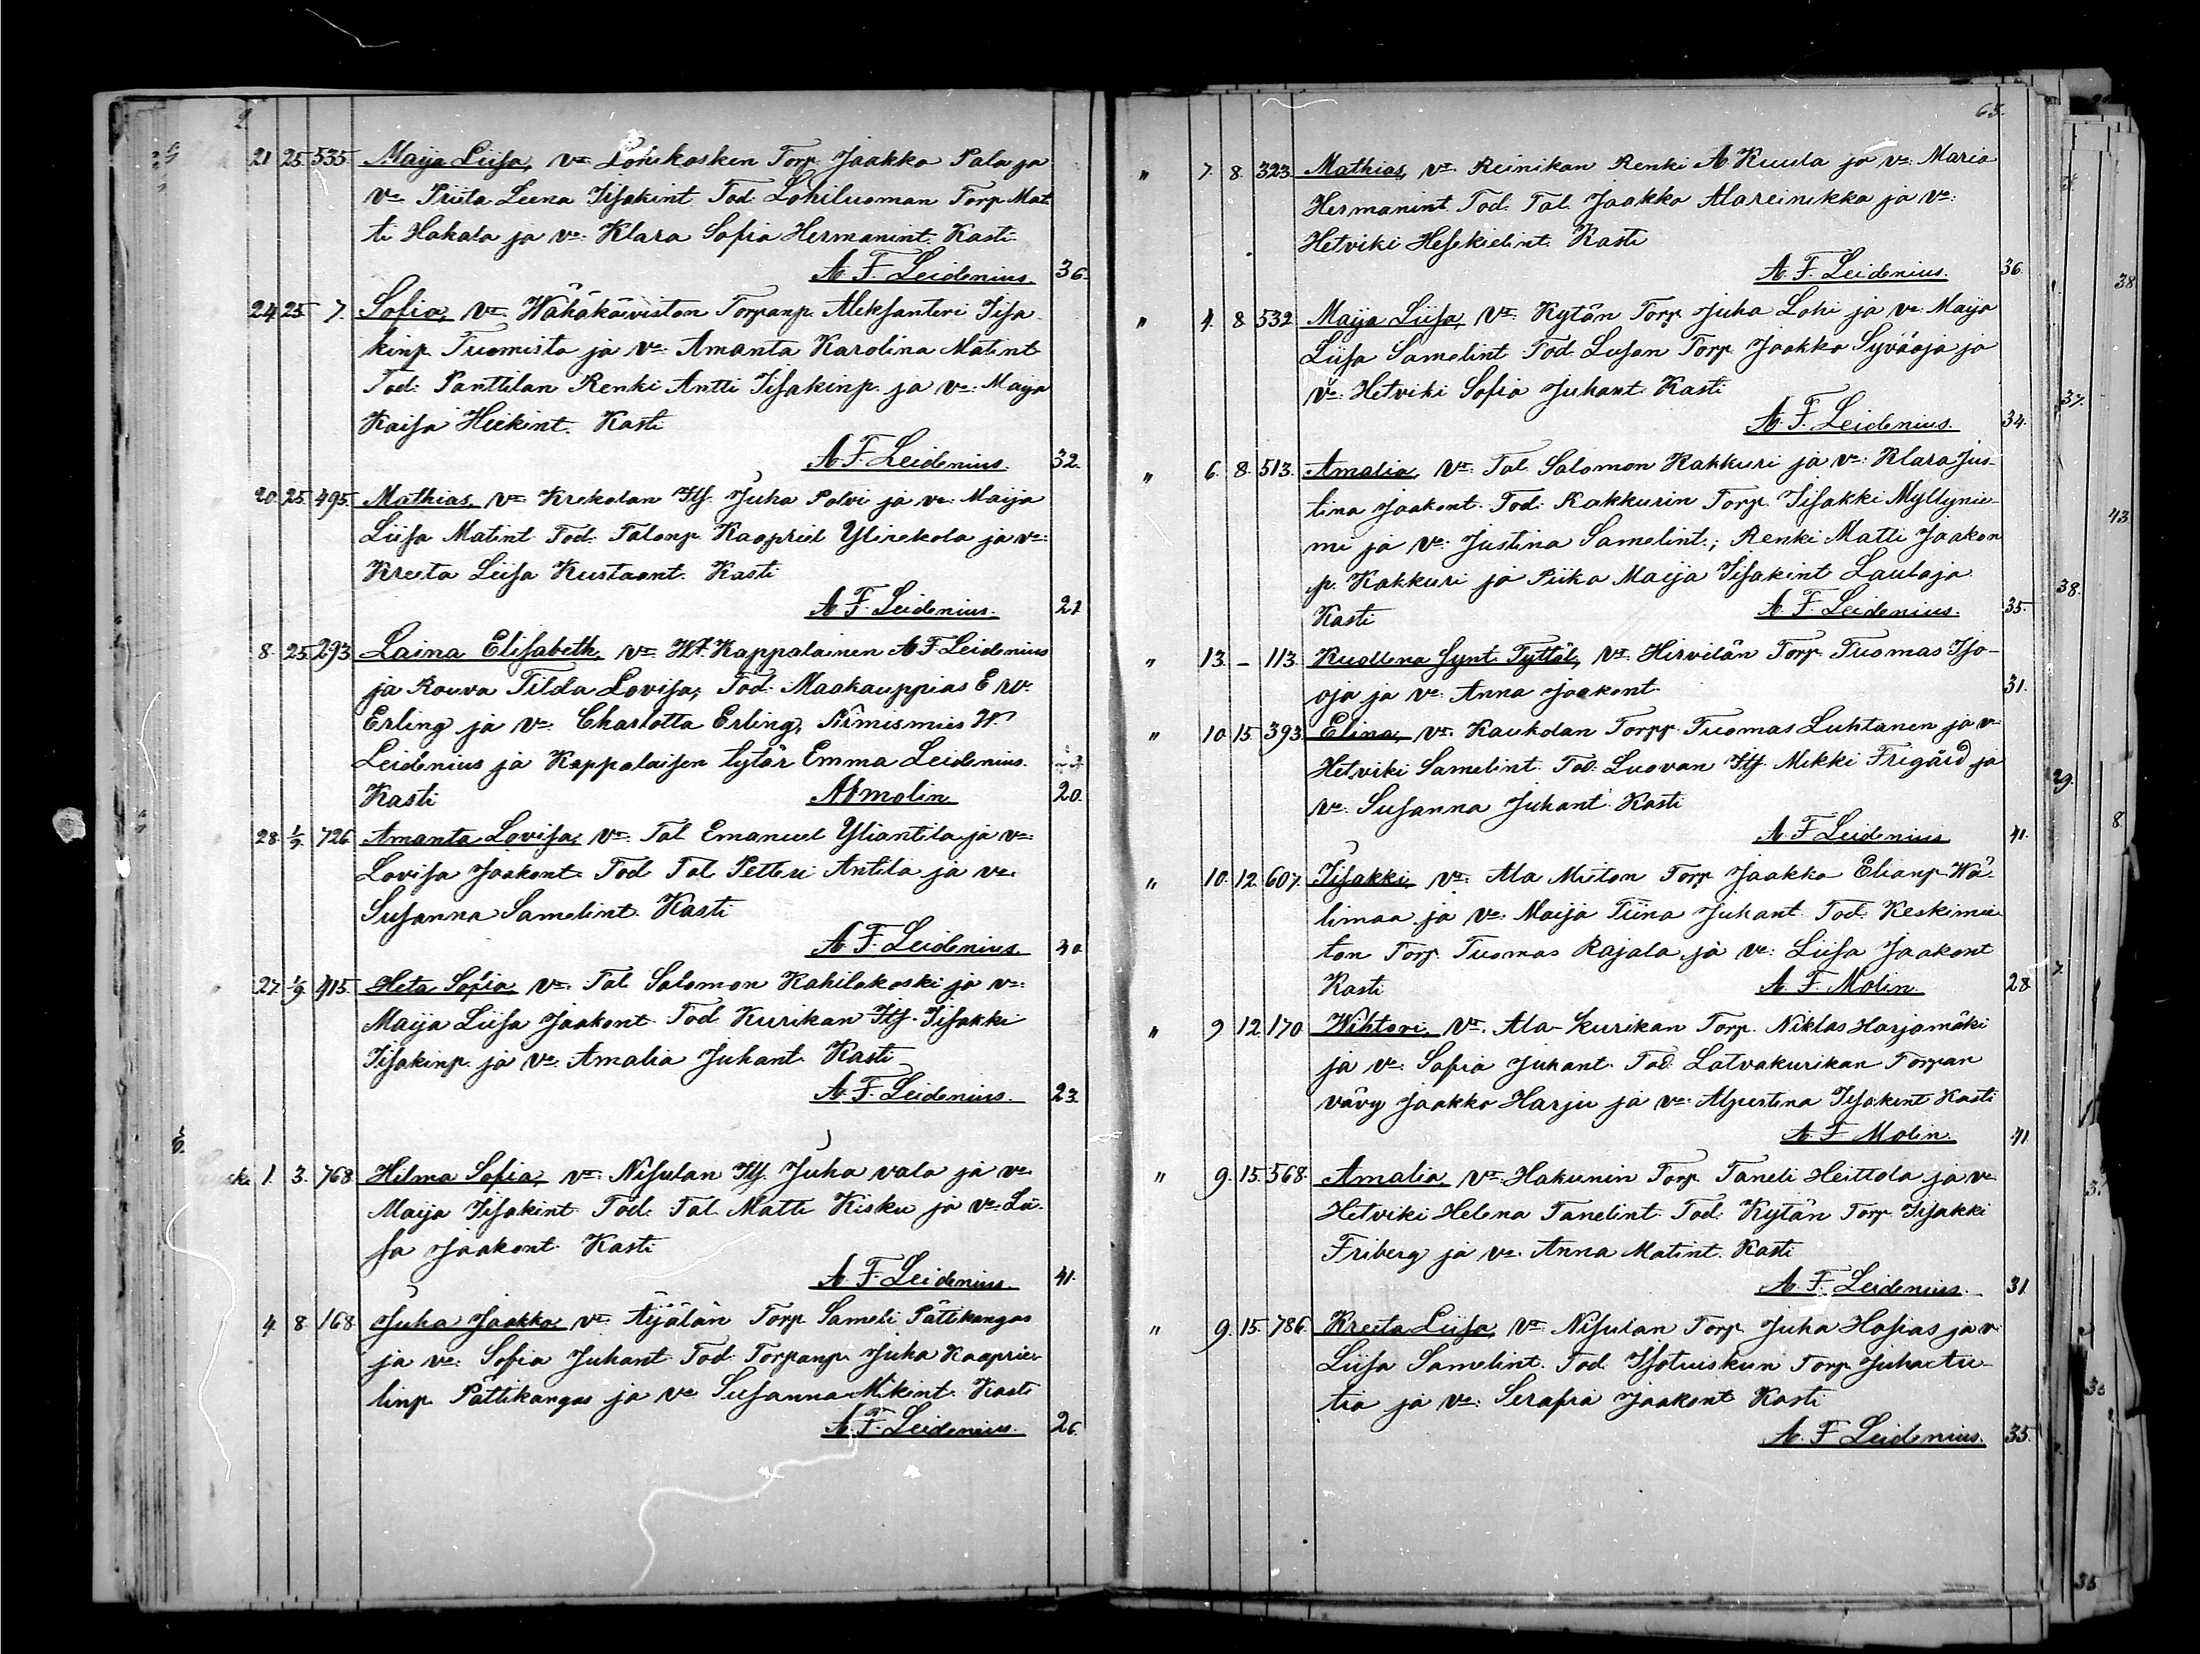 21. 25. 535. Maija Liisa, v:m Lohikosken Torp. Jaakko Pala ja
v:o Priita Leena Iisakint. Tod: Lohiluoman Torp. Mat
ti Hakala ja v:o Klara Sofia Hermanint. Kasti
A. F. Leidenius. 36.
24. 25. 7. Sofia, v:m Wähäköiviston Torpanp. Aleksanteri Iisa
kinp. Tuomisto ja v:o Amanta Karolina Matint.
Tod: Panttilan Renki Antti Iisakinp. ja v:o Maija
Kaisa Heikint. Kasti
A. F. Leidenius. 32.
20. 25. 495. Mathias, v:m Krekolan Itj. Juha Polvi ja v:o Maija
Liisa Matint. Tod: Talonp. Kaapriel Ylirekola ja v:o
Kreeta Liisa Kustaant. Kasti
A. F. Leidenius. 21
8. 25. 293. Laina Elisabeth, v:m Kappalainen A F Leidenius
ja Rouva Tilda Lovisa, Tod: Maakauppias E W.
Erling ja v:o Charlotta Erling, Nimismies
Leidenius ja Kappalaisen tytär Emma Leidenius.
Kasti A F Molin 20.
28. 1/9. 726. Amanta Lovisa, v:m Tal. Emanuel Yliantila ja v:o
Lovisa Jaakont. Tod. Tal. Petteri Antila ja v:o
Susanna Samelint. Kasti
A. F. Leidenius. 40.
27. 1/9. 415. Heta Sofia v:m Tal. Salomon Kahilakoski ja v:o
Maija Liisa Jaakont. Tod Kurikan Itj. Iisakki
Iisakinp. ja v:o Amalia Juhant. Kasti
A. F. Leidenius. 23.
1. 3. 768. Hilma Sofia, v:m Nisulan Itj. Juha vala ja v:o
Maija Iisakint. Tod. Tal. Matti Kisku ja v:o Lii
sa Jaakont. Kasti
A. F. Leidenius. 41.
4. 8. 168. Juha Jaakko v:m Äijälän Torp. Sameli Pättikangas
ja v:o Sofia Juhant. Tod. Torpanp. Juha Kaaprie
linp. Pättikangas ja v:o Susanna Mikint. Kasti
A. F. Leidenius. 26.
65.
" 7. 8. 323. Mathias, v:m Reinikan Renki A Kuula ja v:o Maria
Hermanint. Tod. Tal. Jaakko Alareinikka ja v:o
Hetviki Hesekielint. Kasti
A. F. Leidenius. 36.
" 4. 8. 532. Maija Liisa, v:m Kytän Torp. Juha Lohi ja v:o Maija
Liisa Samelint. Tod. Lusan Torp. Jaakko Syväoja ja
v:o Hetviki Sofia Juhant. Kasti
A. F. Leidenius. 34.
" 6. 8. 513. Amalia, v:m Tal. Salomon Kakkuri ja v:o Klara Jus-
tina Jaakont. Tod. Kakkurin Torp. Iisakki Myllynie-
mi ja v:o Justina Samelint.; Renki Matti Jaakon
p. Kakkuri ja Piika Maija Iisakint. Laulaja
Kasti A. F. Leidenius. 35.
" 13. - 113. Kuollena Synt. Tyttöl., v:m Hirvelän Torp. Tuomas Iso-
oja ja v:o Anna Jaakont. 31.
" 10. 15. 393. Elina, v:m Kaukolan Torpp. Tuomas Luhtanen ja v:o
Hetviki Samelint. Tod. Luovan Itj. Mikki Frigård ja
v:o Susanna Juhant. Kasti
A. F. Leidenius 41.
" 10. 12. 607. Iisakki, v:m Ala Mieton Torp. Jaakko Elianp. Wä
limaa ja v:o Maija Tiina Juhant. Tod. Keskimie
ton Torp. Tuomas Rajala ja v:o Liisa Jaakont
Kasti A. F. Molin. 28.
" 9. 12. 170. Wihtori, v:m Ala-Kurikan Torp. Niklas Harjamäki
ja v:o Sofia Juhant. Tod. Latvakurikan Torpan
vävy Jaakko Harju ja v:o Alpertina Iisakint Kasti
A. F. Molin. 41.
" 9. 15. 568. Amalia, v:m Hakunin Torp. Taneli Heittola ja v:o
Hetviki Helena Tanelint. Tod. Kytän Torp. Iisakki
Friberg ja v:o Anna Matint. Kasti
A. F. Leidenius. 31.
" 9. 15. 786. Kreeta Liisa, v:m Nisulan Torp. Juha Hosias ja v:o
Liisa Samelint. Tod. Isotuiskun Torp. Juha Au
tio ja v:o Serafia Jaakont Kasti
A. F. Leidenius. 35.